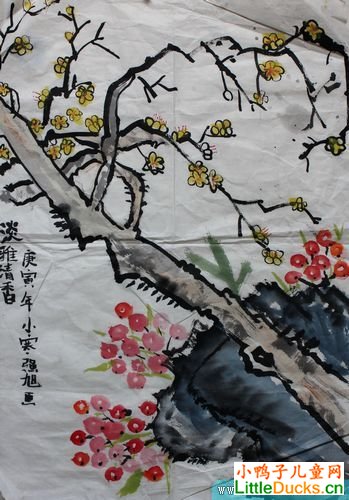 淡雅清香
庚寅年小寒·强旭画
小鸭子儿童网
LittleDucks.cn